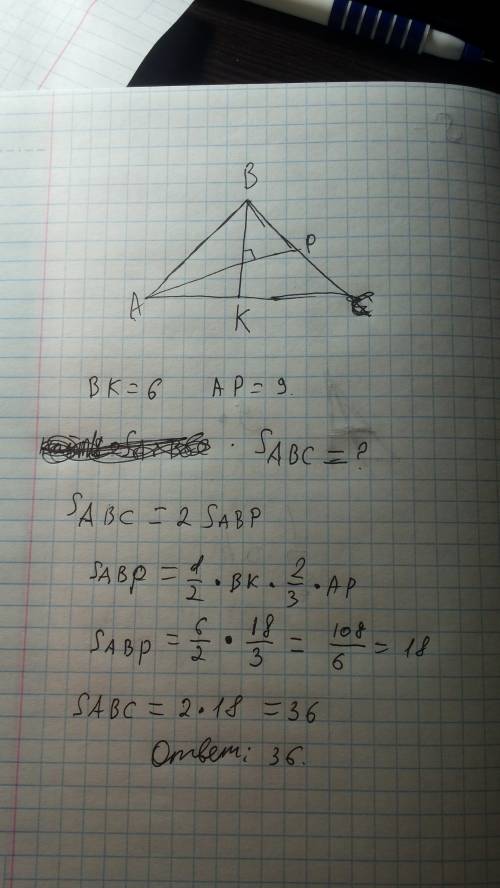 B
P
A
K
C
BK = 6 AP = 9.
S ABC = ?
S ABC = 2 S ABP
S ABP = 1/2 · BK · 2/3 · AP
S ABP = 6/2 · 18/3 = 108/6 = 18
S ABC = 2 · 18 = 36
Ответ: 36.